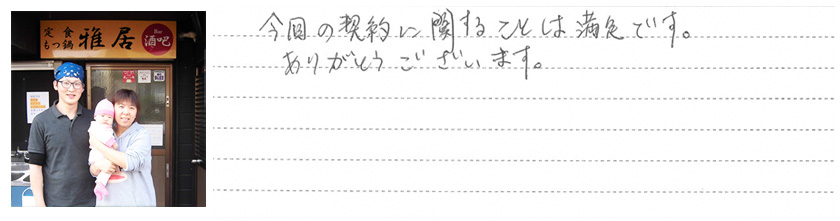 定食
もつ鍋
雅居
Bar
酒吧
今回の契約に関することは満足です。
ありがとうございます。